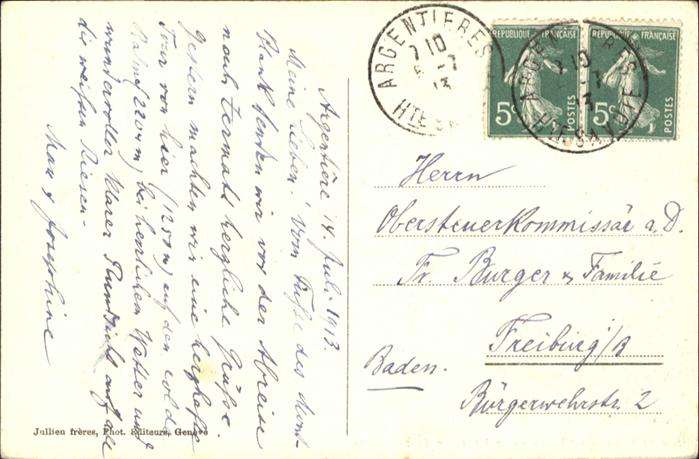 Argentière 14. Juli 1913.
Meine Lieben! Vom Fuße des Mont-
blank senden wir vor der Abreise
nach Zermatt herzliche Grüße.
Gestern machten wir eine herzhafte
Tour von hier (1250 m) auf den col de
Balme 2204 m, bei herrlichem Wetter und
wundervoller klarer Rundsicht auf die
die weißen Riesen.
Max & Josephine
ARGENTIERES
7 10
7
13
HTE SA
REPUBLIQUE FRANÇAISE
5c
POSTES
REPUBLIQUE FRANÇAISE
5c
POSTES
HTE SAVOIE
Herrn
Obersteuerkommissär a. D.
Fr. Bürger & Familie
Freiburg i/B
Baden.
Bürgerwehrstr. 2
Jullien frères, Phot. Editeurs, Genève